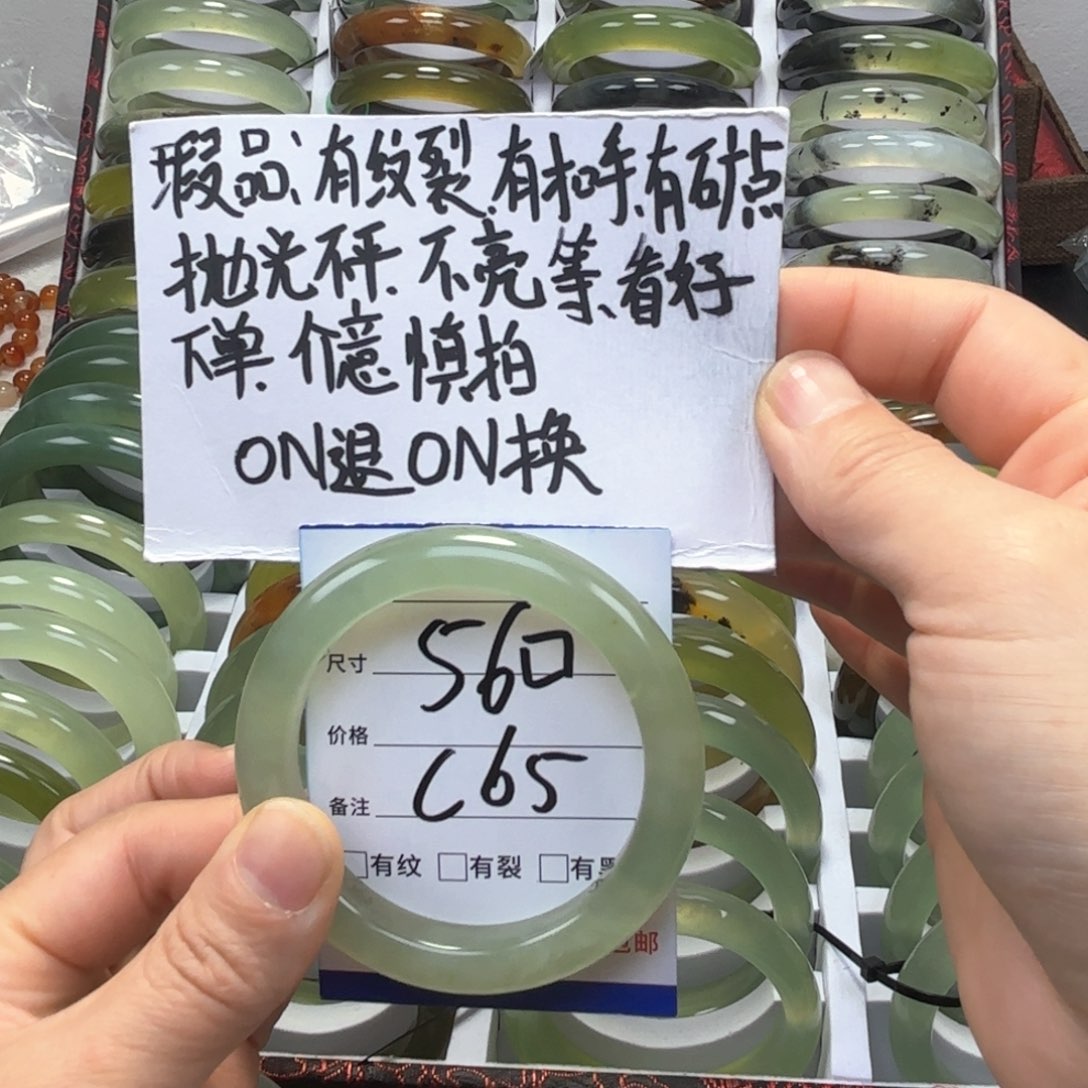 瑕品、有纹裂、有扣手、有矿点
抛光砰、不亮等、看好
下单、介意慎拍
ON退ON换
尺寸 560
价格
备注 C65
有纹 有裂 有黑
包邮